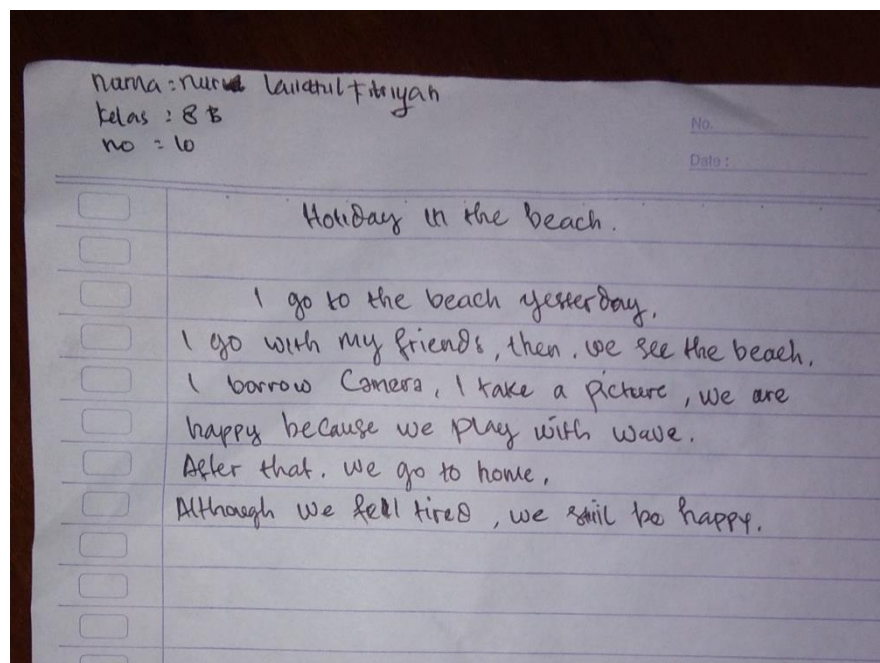 nama : nurul Lailatul Fitriyah
kelas : 8 B
no = 10
No.
Date :
Holiday in the beach.
I go to the beach yesterday.
I go with my friends, then. we see the beach.
I borrow Camera, I take a picture, we are
happy because we play with wave.
After that. we go to home.
Although we feel tired, we still be happy.